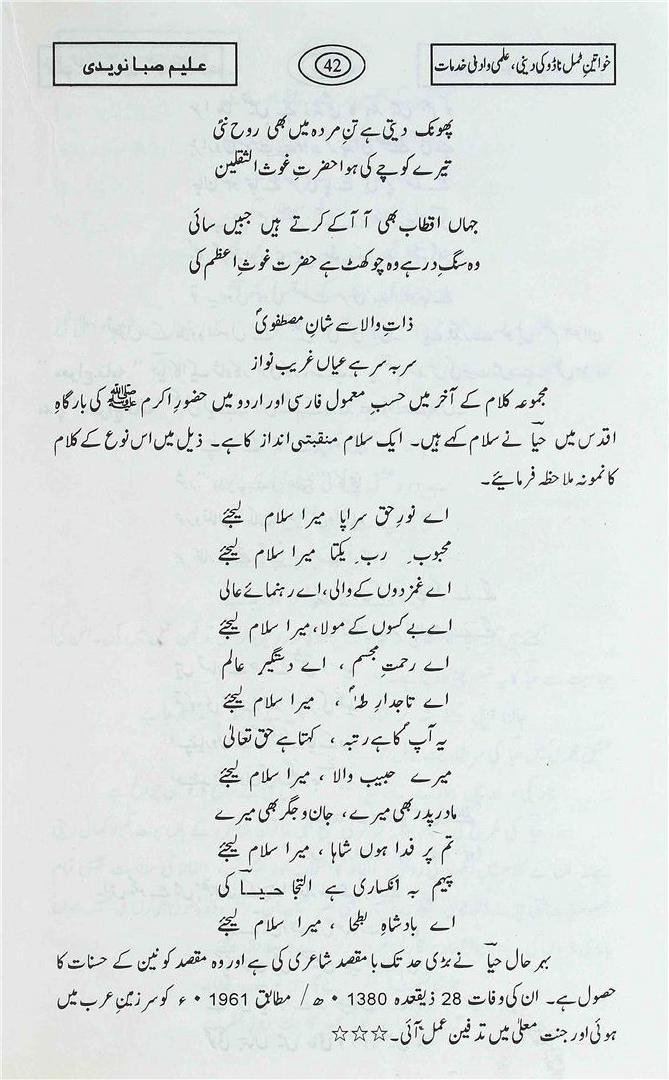 خواتینِ ٹمل ناڈو کی دینی، علمی و ادبی خدمات
42
علیم صبا نویدی
پھونک دیتی ہے تنِ مردہ میں بھی روح نئی
تیرے کوچے کی ہوا حضرتِ غوث الثقلین
جہاں اقطاب بھی آ آ کے کرتے ہیں جبیں سائی
وہ سنگِ در ہے وہ چوکھٹ ہے حضرت غوثِ اعظم کی
ذاتِ والا سے شانِ مصطفویؐ
سر بہ سر ہے عیاں غریب نواز
مجموعہ کلام کے آخر میں حسبِ معمول فارسی اور اردو میں حضورِ اکرم ﷺ کی بارگاہِ
اقدس میں حیاؔ نے سلام کہے ہیں۔ ایک سلام منقبتی انداز کا ہے۔ ذیل میں اس نوع کے کلام
کا نمونہ ملاحظہ فرمائیے۔
اے نورِ حق سراپا میرا سلام لیجئے
محبوبِ ربِ یکتا میرا سلام لیجئے
اے غمزدوں کے والی، اے رہنمائے عالی
اے بے کسوں کے مولا، میرا سلام لیجئے
اے رحمتِ مجسم ، اے دستگیر عالم
اے تاجدارِ طہٰؐ ، میرا سلام لیجئے
یہ آپؐ کا ہے رتبہ ، کہتا ہے حق تعالیٰ
میرے حبیب والا ، میرا سلام لیجئے
مادر پدر بھی میرے، جان و جگر بھی میرے
تم پر فدا ہوں شاہا ، میرا سلام لیجئے
پیہم بہ انکساری ہے التجا حیاؔ کی
اے بادشاہِ بطحا ، میرا سلام لیجئے
بہر حال حیاؔ نے بڑی حد تک با مقصد شاعری کی ہے اور وہ مقصد کونین کے حسنات کا
حصول ہے۔ ان کی وفات 28 ذیقعدہ 1380 ٠ ھ / مطابق 1961 ٠ ء کو سرزمینِ عرب میں
ہوئی اور جنت معلیٰ میں تدفین عمل آئی۔ ☆☆☆